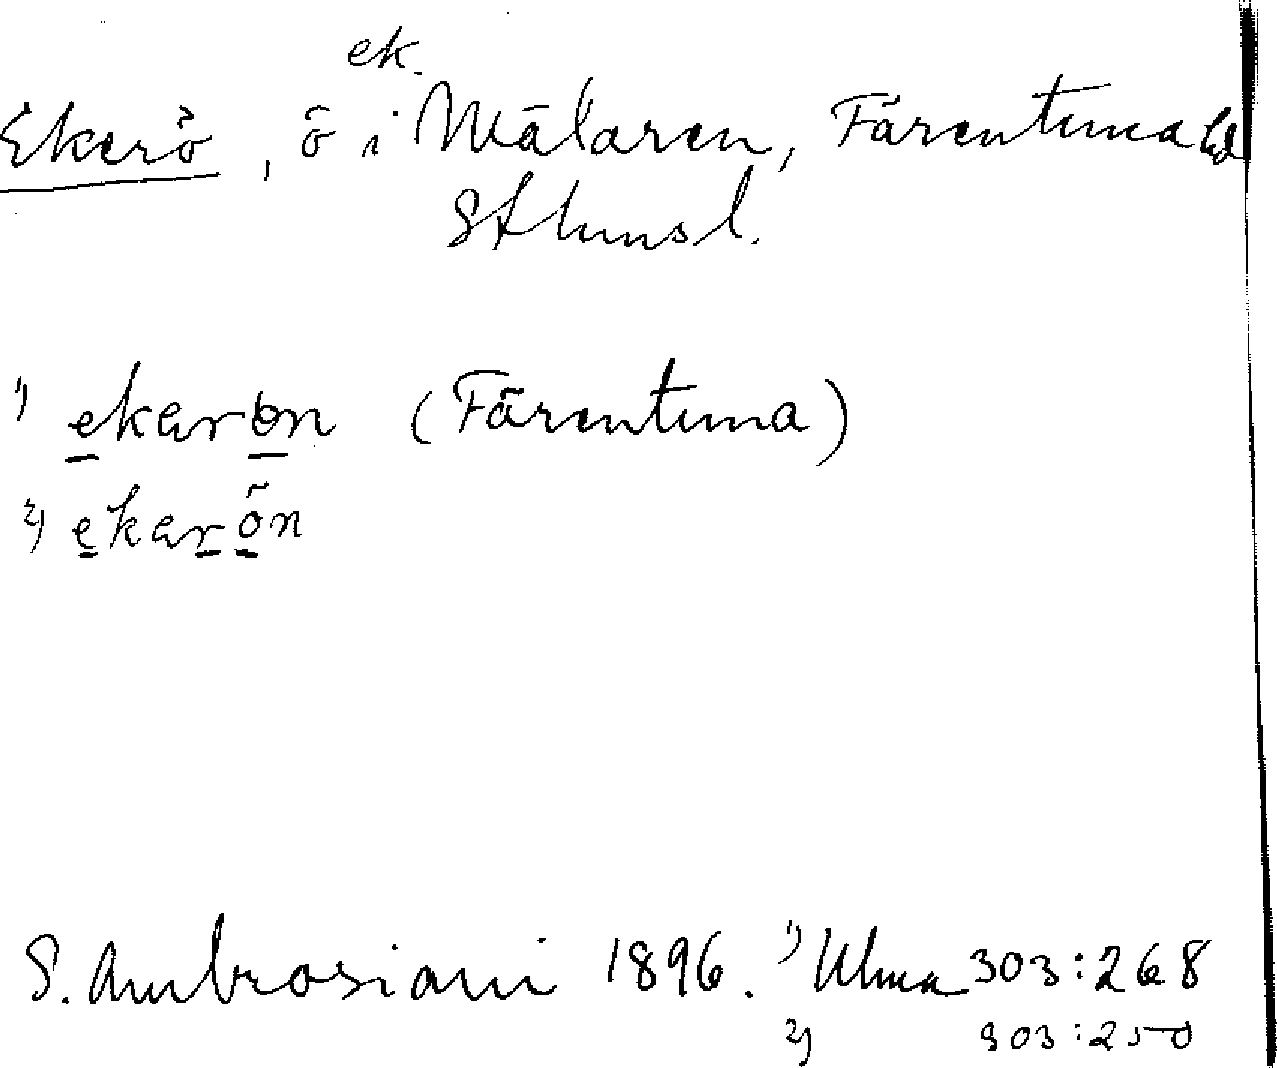 ek.
Ekerö, ö i Mälaren, Färentuna hd
Sthmsl.
1) ekarön (Färentuna)
2) ekarön
S. Ambrosiani 1896. 1) Ulma 303:268
2) 303:250